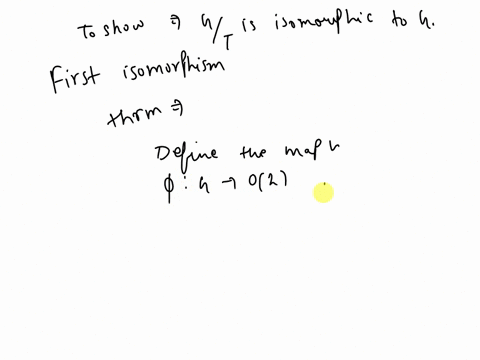 To show ⇒ G/T is isomorphic to G.
First isomorphism
thrm ⇒
Define the map
ϕ : G → O(2)